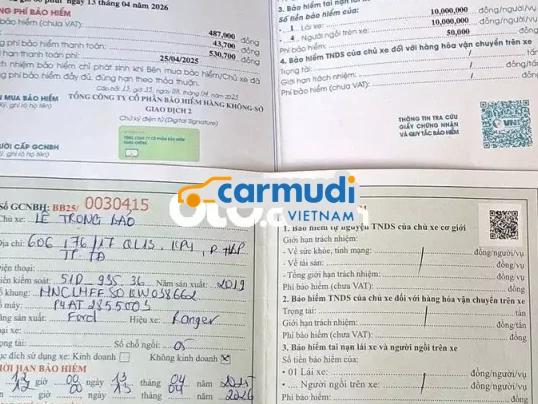 phút ngày 13 tháng 04 năm 2026
NG PHÍ BẢO HIỂM
bảo hiểm (chưa VAT):
487,000 đồng
43,700 đồng
ng phí bảo hiểm thanh toán: 530,700 đồng
i hạn thanh toán phí: 25/04/2025
ch nhiệm bảo hiểm chỉ phát sinh khi Bên mua bảo hiểm/Chủ xe đã
ng phí bảo hiểm đầy đủ, đúng hạn theo thỏa thuận.
N MUA BẢO HIỂM
TỔNG CÔNG TY CỔ PHẦN BẢO HIỂM HÀNG KHÔNG-SỞ
GIAO DỊCH 2
Chữ ký điện tử (Digital Signature)
ký, ghi rõ họ tên)
ƯỜI CẤP GCNBH
Ký, ghi rõ họ tên)
3. Bảo hiểm tai nạn lái
Số tiền bảo hiểm của:
- Lái xe: 10,000,000 đồng/người/vụ
10,000,000 đồng/người/vụ
Phí bảo hiểm: 50,000 đồng
4. Bảo hiểm TNDS của chủ xe đối với hàng hóa vận chuyển trên xe
Trọng tải: tấn
Giới hạn trách nhiệm:
Phí bảo hiểm (chưa VAT):
THÔNG TIN TRA CỨU
GIẤY CHỨNG NHẬN
VÀ QUY TẮC BẢO HIỂM
carmudi
VIETNAM
Số GCNBH: BB25/ 0030415
Chủ xe: LÊ TRỌNG BẢO
Địa chỉ: 606 /76/17 QL13, KP4, P. HBP
TP. TĐ
Điện thoại:
Biển kiểm soát: 51D-935.36 Năm sản xuất: 2019
Số khung: MNCLMFF50KW038662
P4AT 2855005
Hãng sản xuất: Ford Hiệu xe: Ranger
Loại xe:
Trọng tải: Số chỗ ngồi: 05
Mục đích sử dụng xe: Kinh doanh Không kinh doanh
GIỚI HẠN BẢO HIỂM
12 giờ 00 ngày 13 tháng 04 năm 2025
12 giờ 00 ngày 13 tháng 04 năm 2026
1. Bảo hiểm tự nguyện TNDS của chủ xe cơ giới
Giới hạn trách nhiệm:
- Về sức khỏe, tính mạng: đồng/người/vụ
- Về tài sản: đồng/vụ
- Tổng giới hạn trách nhiệm: đồng/vụ
Phí bảo hiểm (chưa VAT): đồng
2. Bảo hiểm TNDS của chủ xe đối với hàng hóa vận chuyển trên xe
Trọng tải: tấn
Giới hạn trách nhiệm: đồng/tấn
Phí bảo hiểm (chưa VAT): đồng
3. Bảo hiểm tai nạn lái xe và người ngồi trên xe
Số tiền bảo hiểm của:
• 01 Lái xe: đồng/người/vụ
• Người ngồi trên xe: đồng/người/vụ
Phí bảo hiểm: đồng